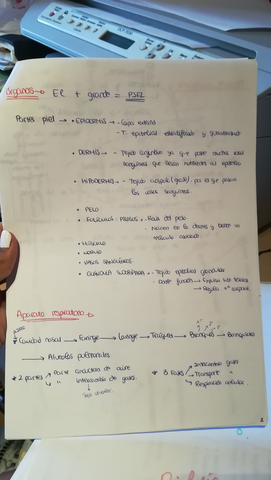 Órganos → El + grande = PIEL
Partes piel → • EPIDERMIS → - Capa externa
- T. epitelial estratificado y queratinizado
• DERMIS → - Tejido conjuntivo ya q posee muchos vasos
sanguíneos que llevan nutrientes al epitelio
• HIPODERMIS → - Tejido adiposo (grasa), ya q pasan
los vasos sanguíneos.
• PELO
• FOLÍCULOS PILOSOS → Raíz del pelo
- Nacen en la dermis y tienen un
músculo asociado.
• MÚSCULO
• NERVIO
• VASOS SANGUÍNEOS
• GLÁNDULA SUDORÍPARA → - Tejido epitelial glandular
- Doble función → Expulsa sust tóxicas
→ Regula Tª corporal
Aparato respiratorio →
Cavidad nasal → Faringe → Laringe → Tráquea → Bronquios → Bronquiolos
→ Alveolos pulmonares
* 2 partes → Parte conductora de aire
→ " intercambio de gases.
* 3 Fases → Intercambio gases
→ Transporte "
→ Respiración celular.